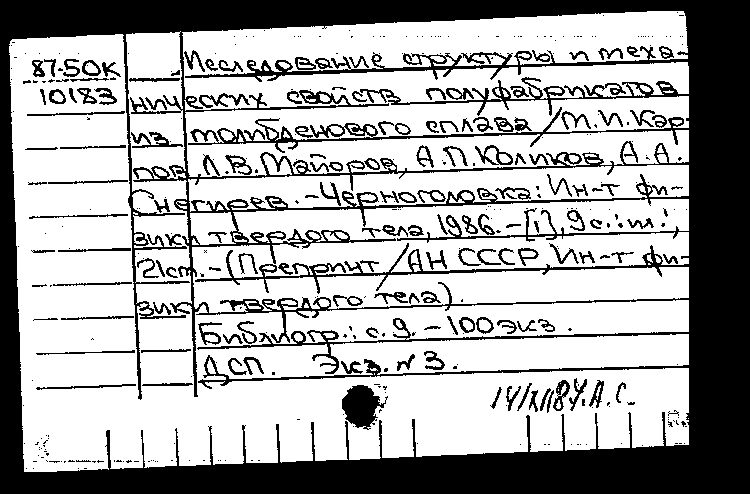 87-50К
10183
Исследование структуры и меха-
нических свойств полуфабрикатов
из молибденового сплава / М.И.Кар-
пов, Л.В.Майоров, А.П.Коликов, А.А.
Снегирев. - Черноголовка: Ин-т фи-
зики твердого тела, 1986. - [1], 9 с.: ил.;
21 см. - (Препринт / АН СССР, Ин-т фи-
зики твердого тела).
Библиогр.: с. 9. - 100 экз.
ДСП. Экз. №3.
А.С.